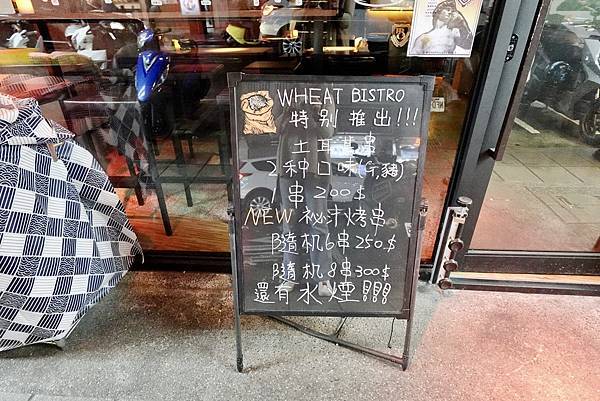 WHEAT BISTRO
特别推出!!!
土耳其串
2种口味(牛豬)
串200$
NEW 祕汁烤串
隨机6串250$
隨机8串300$
還有水煙!!!